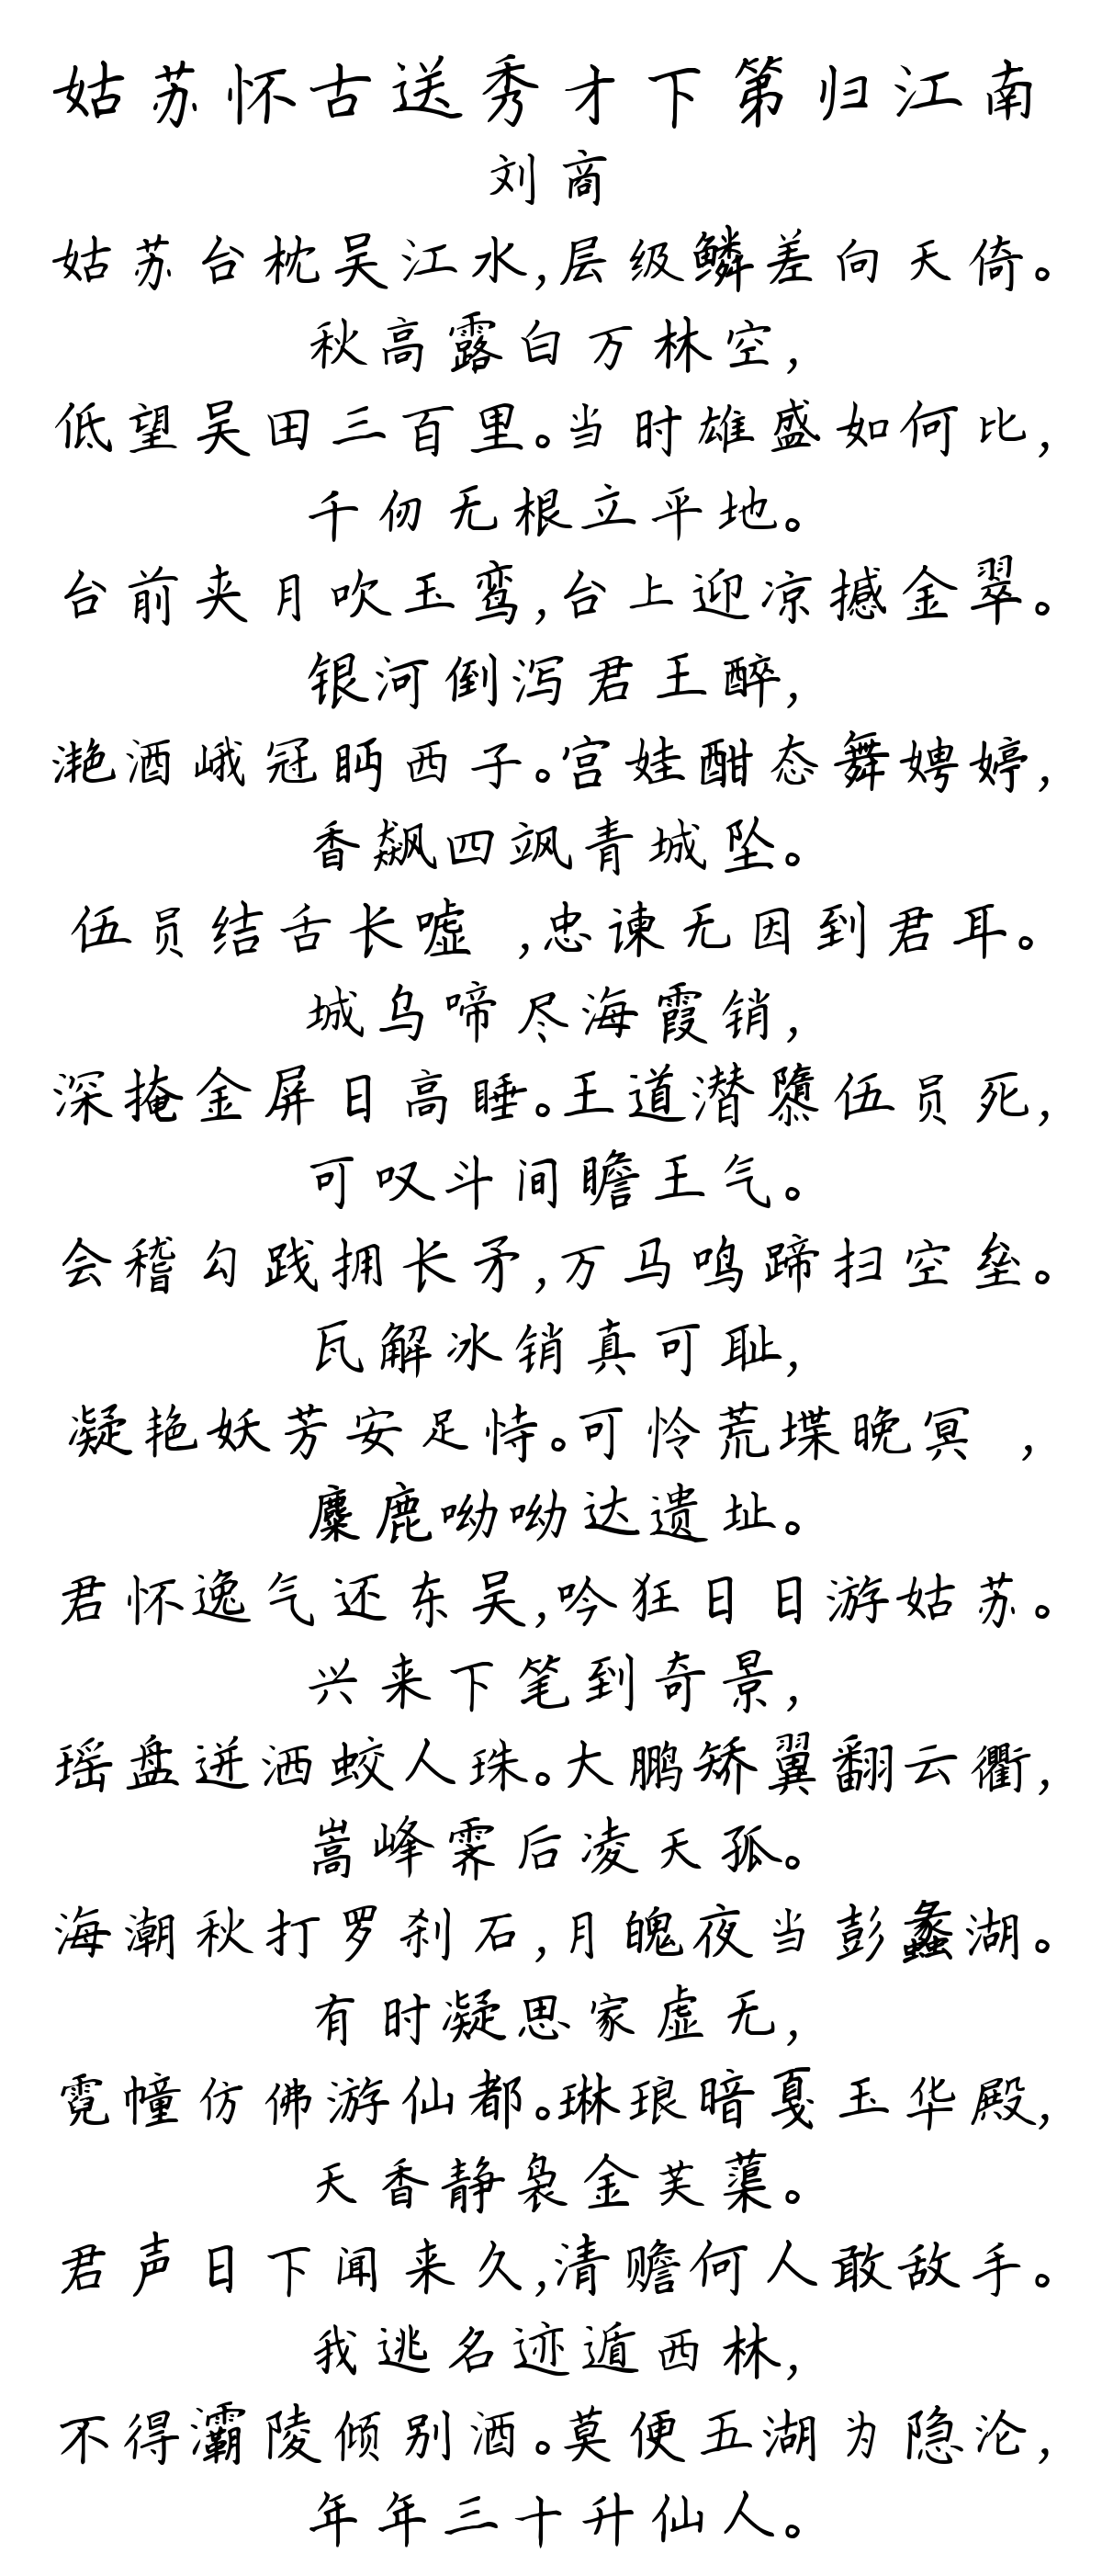 姑苏怀古送秀才下第归江南
刘商
姑苏台枕吴江水,层级鳞差向天倚。
秋高露白万林空,
低望吴田三百里。当时雄盛如何比,
千仞无根立平地。
台前夹月吹玉鸾,台上迎凉撼金翠。
银河倒泻君王醉,
滟酒峨冠眄西子。宫娃酣态舞娉婷,
香飙四飒青城坠。
伍员结舌长嘘 ,忠谏无因到君耳。
城乌啼尽海霞销,
深掩金屏日高睡。王道潜隳伍员死,
可叹斗间瞻王气。
会稽勾践拥长矛,万马鸣蹄扫空垒。
瓦解冰销真可耻,
凝艳妖芳安足恃。可怜荒堞晚冥 ,
麋鹿呦呦达遗址。
君怀逸气还东吴,吟狂日日游姑苏。
兴来下笔到奇景,
瑶盘迸洒蛟人珠。大鹏矫翼翻云衢,
嵩峰霁后凌天孤。
海潮秋打罗刹石,月魄夜当彭蠡湖。
有时凝思家虚无,
霓幢仿佛游仙都。琳琅暗戛玉华殿,
天香静袅金芙蕖。
君声日下闻来久,清赡何人敢敌手。
我逃名迹遁西林,
不得灞陵倾别酒。莫便五湖为隐沦,
年年三十升仙人。